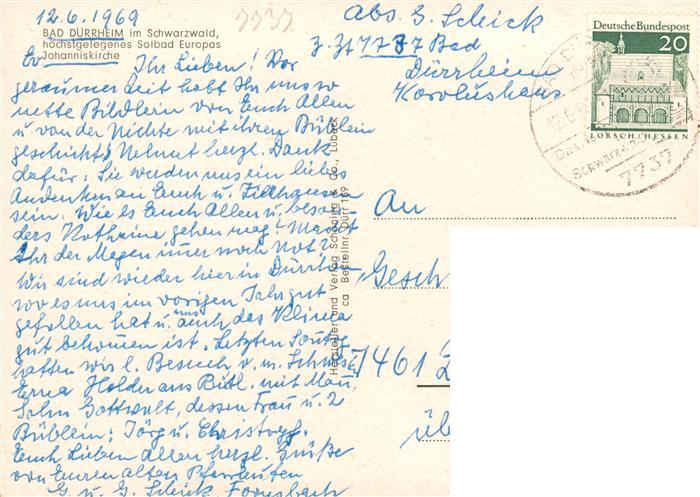 12.6.1969
7737
BAD DÜRRHEIM im Schwarzwald,
höchstgelegenes Solbad Europas
Ev Johanniskirche
Ihr Lieben! Vor
geraumer Zeit habt Ihr uns so
nette Bildlein von Euch Allen
u von der Nichte mit ihren Büblein
geschickt, Helmut herzl. Dank
dafür: Sie werden uns ein liebes
Andenken an Euch u.
sein. Wie es Euch Allen u. beson-
ders Kathrine gehen mag! Macht
Ihr der Magen immer noch Not?
Wir sind wieder hier in Dürrheim
wo es uns im vorigen Jahr gut
gefallen hat u. uns auch das Klima
gut bekommen ist. Letzten Sonntag
hatten wir l. Besuch v. m. Schwester
Erna Holder aus mit Mann,
Sohn Gottwalt, dessen Frau u. 2
Büblein: Jörg u. Christoph.
Euch Lieben Allen herzl. Grüße
von Euren alten Pfarrleuten
G. u. G. Scheick
Hersteller und Verlag Schöning & Co., Lübeck
ca Bestellnr. Dürr 169
Abs. G. Scheick
z. Zt 7737 Bad
Dürrheim
Karolushaus
Deutsche Bundespost
20
LORSCH/HESSEN
12.6.
Das
Schwarzwa
7737
An
Gesch
7461
üb